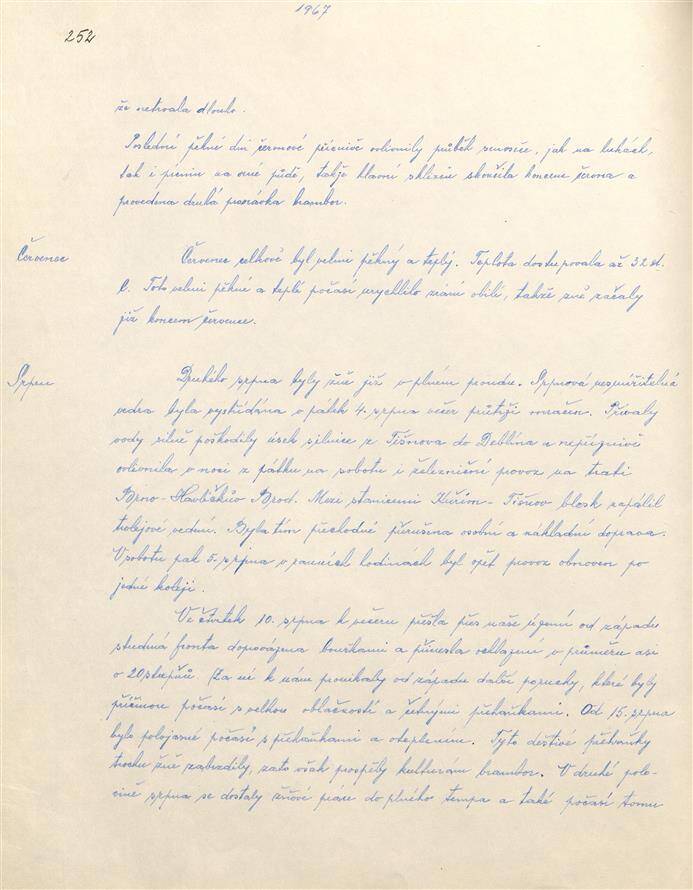 1967
252
že netrvala dlouho.
Poslední pěkné dni červnové příznivě ovlivnily průběh senoseče, jak na lukách,
tak i pícnin na orné půdě, takže hlavní sklizeň skončila koncem června a
provedena druhá proorávka brambor.
Červenec
Červenec celkově byl velmi pěkný a teplý. Teplota dostupovala až 32 st.
C. Toto velmi pěkné a teplé počasí urychlilo zrání obilí, takže žně začaly
již koncem července.
Srpen
Druhého srpna byly žně již v plném proudu. Srpnová nesnesitelná
vedra byla vystřídána v pátek 4. srpna večer průtrží mračen. Přívaly
vody silně poškodily úsek silnice z Tišnova do Deblína a nepříznivě
ovlivnila v noci z pátku na sobotu i železniční provoz na trati
Brno-Havlíčkův Brod. Mezi stanicemi Kuřim - Tišnov blesk zapálil
trolejové vedení. Byla tím přechodně přerušena osobní a nákladní doprava.
V sobotu pak 5. srpna v ranních hodinách byl opět provoz obnoven po
jedné koleji.
Ve čtvrtek 10. srpna k večeru přešla přes naše území od západu
studená fronta doprovázena bouřkami a přinesla ochlazení v průměru asi
o 20 stupňů. Za ní k nám pronikaly od západu další poruchy, které byly
příčinou počasí s velkou oblačností a četnými přeháňkami. Od 15. srpna
bylo polojasné počasí s přeháňkami a oteplením. Tyto dešťové přeháňky
trochu žně zabrzdily, zato však prospěly kulturám brambor. V druhé polo-
vině srpna se dostaly žňové práce do plného tempa a také počasí tomu